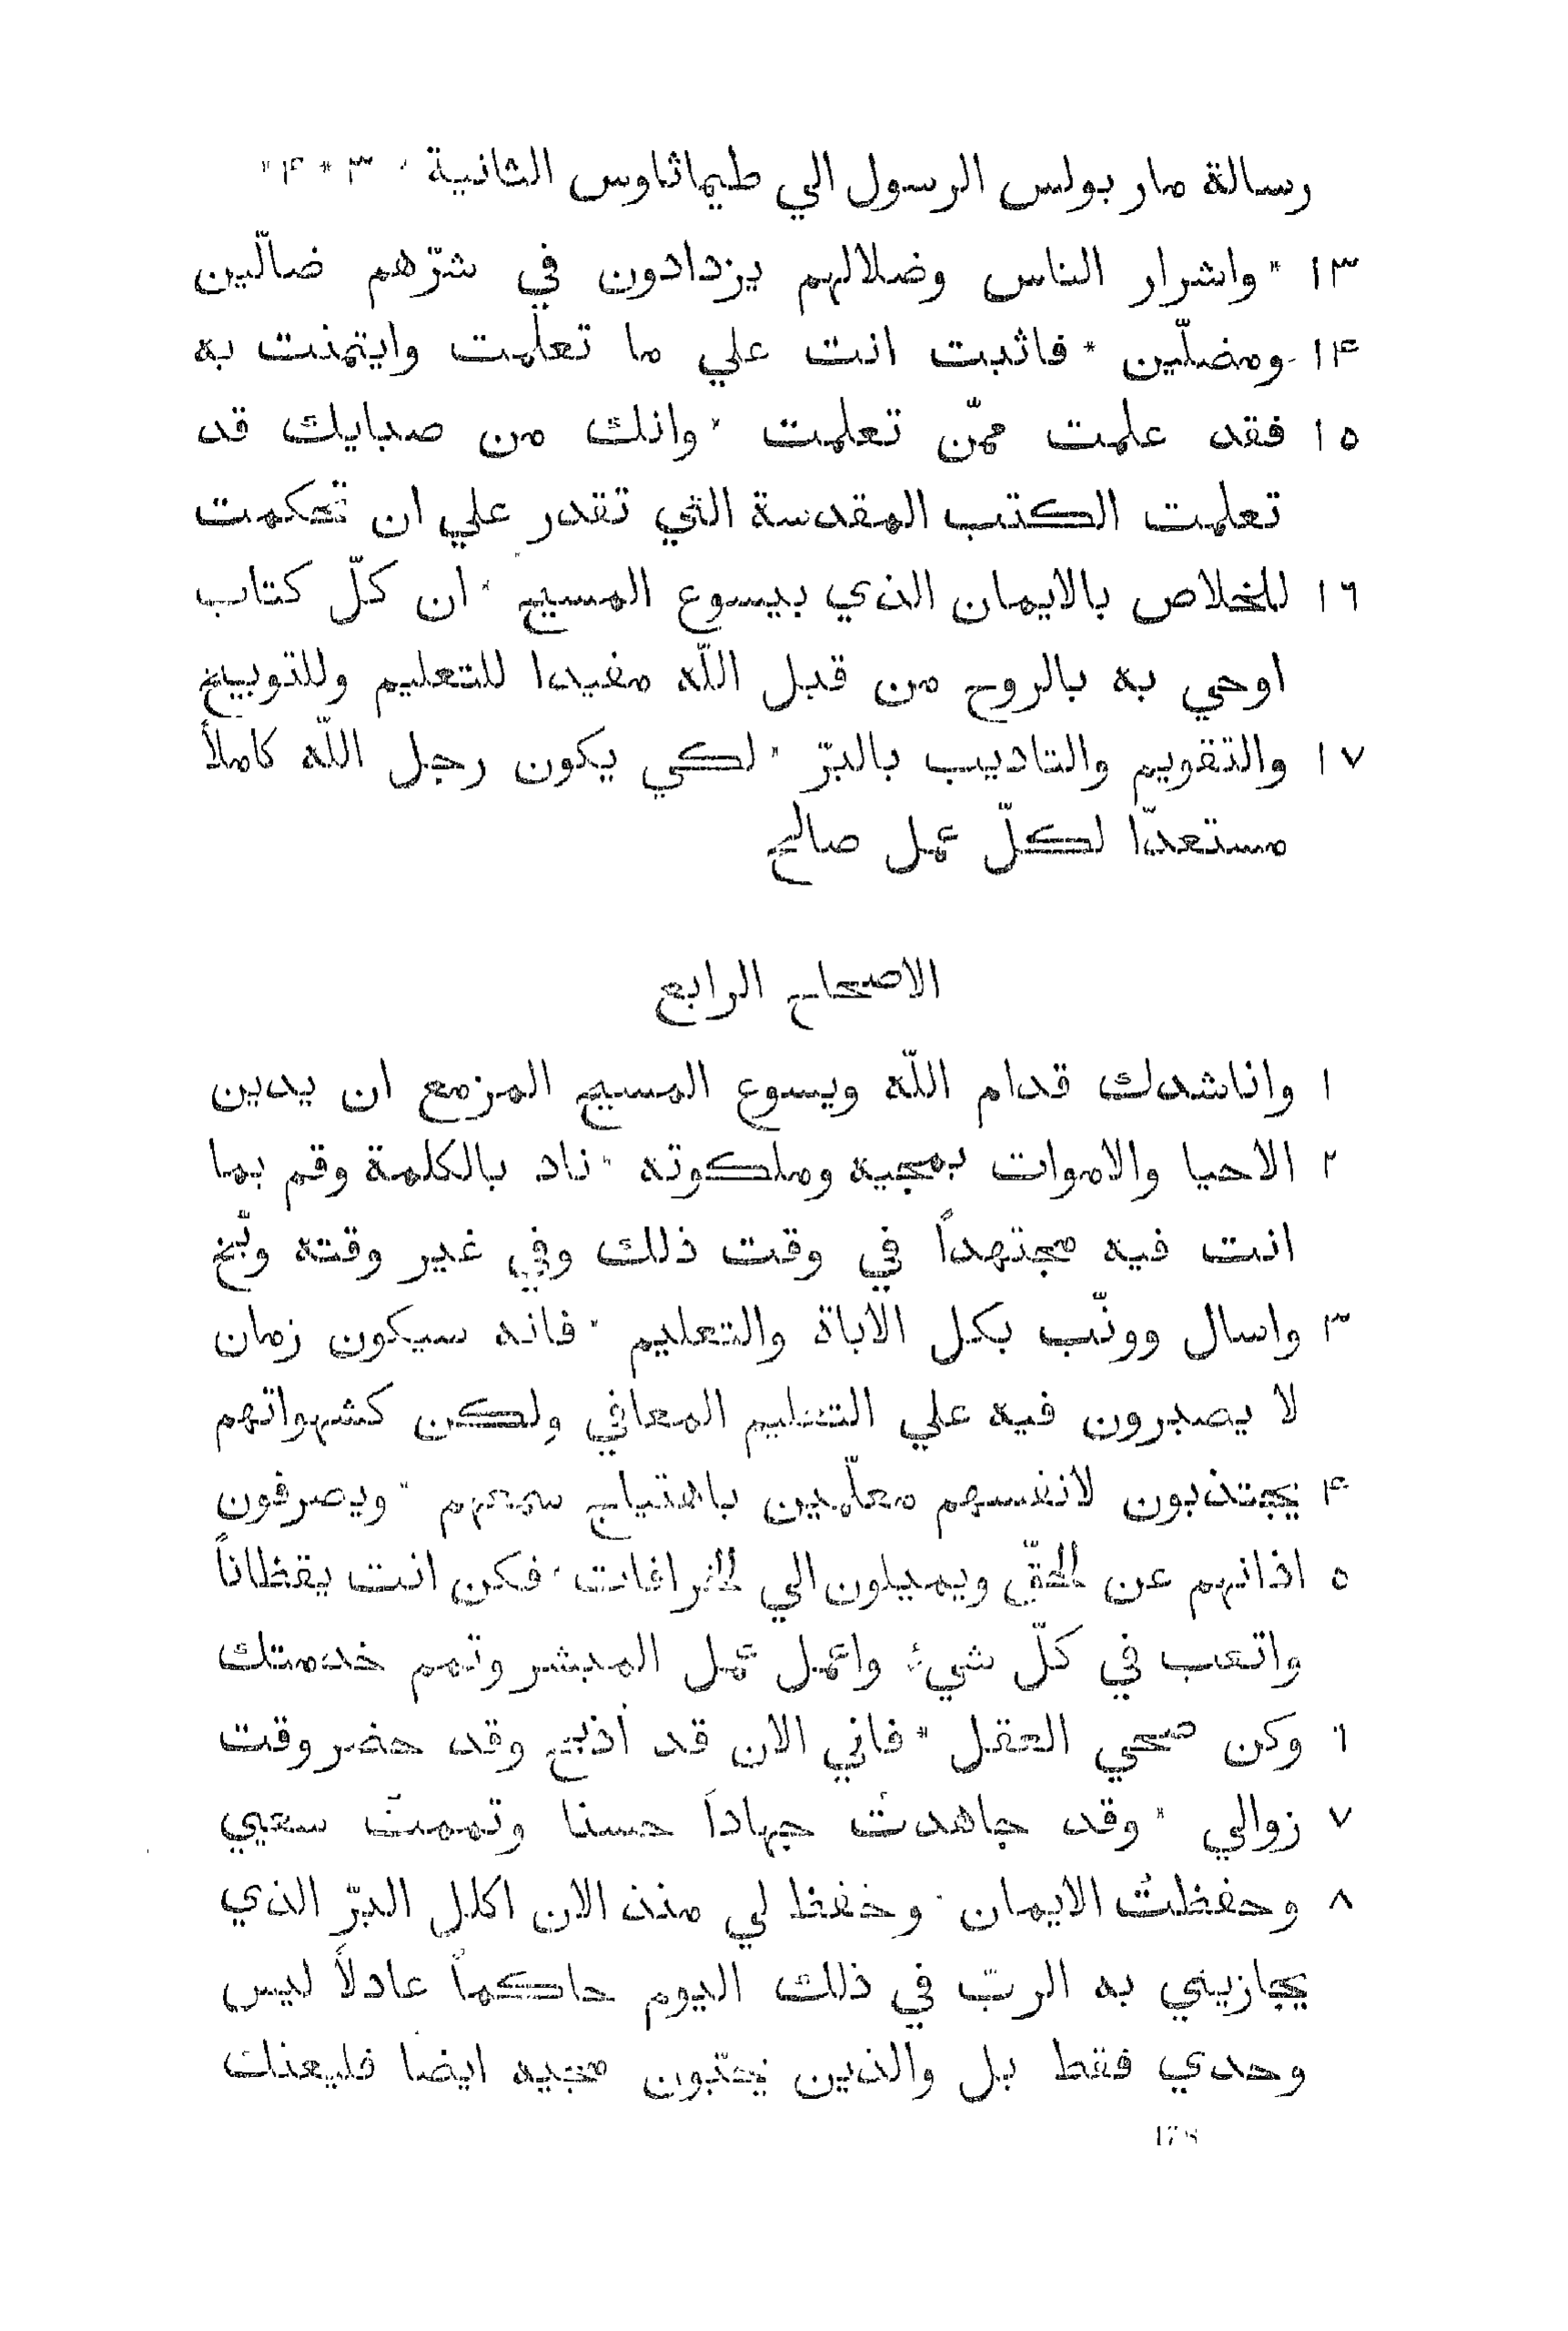 رسالة مار بولس الرسول الي طيماثاوس الثانية ٣ * ۴ *
١٣ * واشرار الناس وضلالهم يزدادون في شرّهم ضالّين
١۴ ومضلّين * فاثبت انت علي ما تعلّمت وايتمنت به
١٥ فقد علمت ممّن تعلمت * وانك من صبايك قد
تعلمت الكتب المقدسة التي تقدر علي ان تحكمت
١٦ للخلاص بالايمان الذي بيسوع المسيح * ان كلّ كتاب
اوحي به بالروح من قبل اللّه مفيدا للتعليم وللتوبيخ
١٧ والتقويم والتاديب بالبرّ * لكي يكون رجل اللّه كاملاً
مستعدّا لكلّ عمل صالح
الاصحاح الرابع
١ واناشدك قدام اللّه ويسوع المسيح المزمع ان يدين
٢ الاحيا والاموات بمجيه وملكوته * ناد بالكلمة وقم بما
انت فيه مجتهداً في وقت ذلك وفي غير وقته وبّخ
٣ واسال وونّب بكل الاناة والتعليم * فانه سيكون زمان
لا يصبرون فيه علي التعليم المعافي ولكن كشهواتهم
۴ يجتذبون لانفسهم معلّمين باهتياج سمعهم * ويصرفون
٥ اذانهم عن الحقّ ويميلون الي الخرافات * فكن انت يقظاناً
واتعب في كلّ شيء واعمل عمل المبشر وتمم خدمتك
٦ وكن صحي العقل * فاني الان قد اُذبح وقد حضر وقت
٧ زوالي * وقد جاهدتُ جهاداً حسنا وتممتُ سعيي
٨ وحفظتُ الايمان * وحُفظ لي منذ الان اكلل البرّ الذي
يجازيني به الربّ في ذلك اليوم حاكماً عادلاً ليس
وحدي فقط بل والذين يحبّون مجيه ايضا فليعنك
178